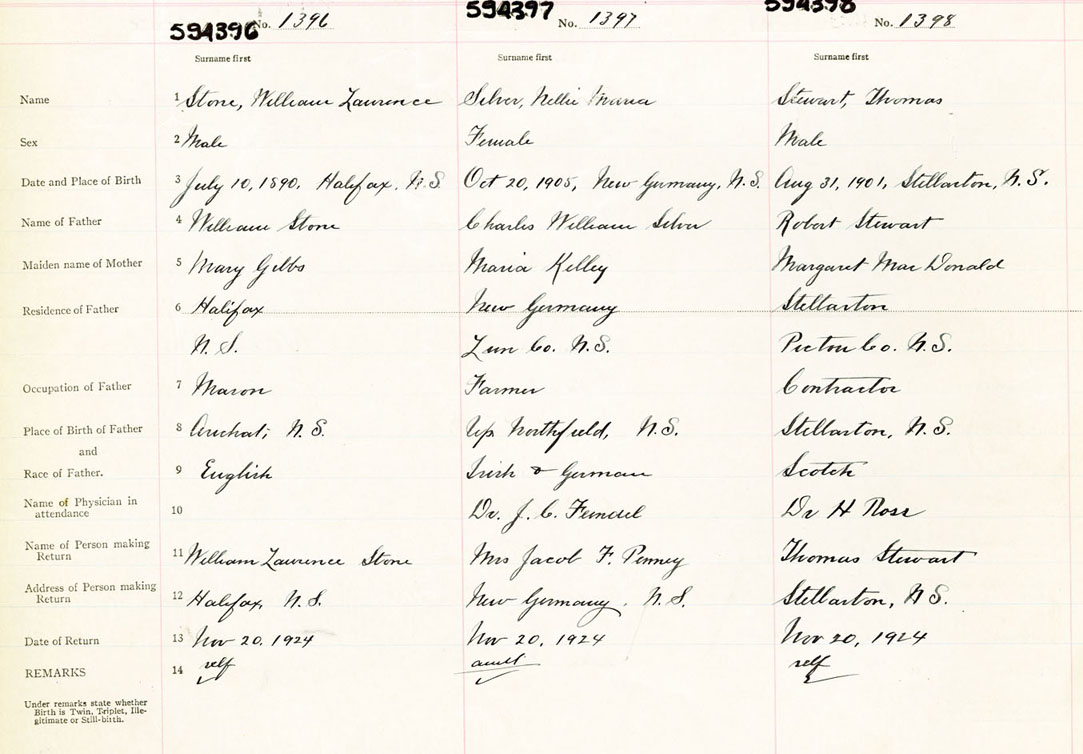 594396 No. 1396 594397 No. 1397 594398 No. 1398
Surname first Surname first Surname first
Name 1 Stone, William Lawrence Silver, Nellie Maria Stewart, Thomas
Sex 2 Male Female Male
Date and Place of Birth 3 July 10, 1890, Halifax, N.S. Oct 20, 1905, New Germany, N.S. Aug 31, 1901, Stellarton, N.S.
Name of Father 4 William Stone Charles William Silver Robert Stewart
Maiden name of Mother 5 Mary Gibbs Maria Kelley Margaret MacDonald
Residence of Father 6 Halifax New Germany Stellarton
N.S. Lun Co. N.S. Pictou Co. N.S.
Occupation of Father 7 Mason Farmer Contractor
Place of Birth of Father 8 Arichat, N.S. Up Northfield, N.S. Stellarton, N.S.
and
Race of Father. 9 English Irish & German Scotch
Name of Physician in
attendance 10 Dr. J. C. Dr H Ross
Name of Person making
Return 11 William Lawrence Stone Mrs Jacob F. Penney Thomas Stewart
Address of Person making
Return 12 Halifax, N.S. New Germany, N.S. Stellarton, N.S.
Date of Return 13 Nov 20, 1924 Nov 20, 1924 Nov 20, 1924
REMARKS 14 self aunt self
Under remarks state whether
Birth is Twin, Triplet, Ille-
gitimate or Still-birth.